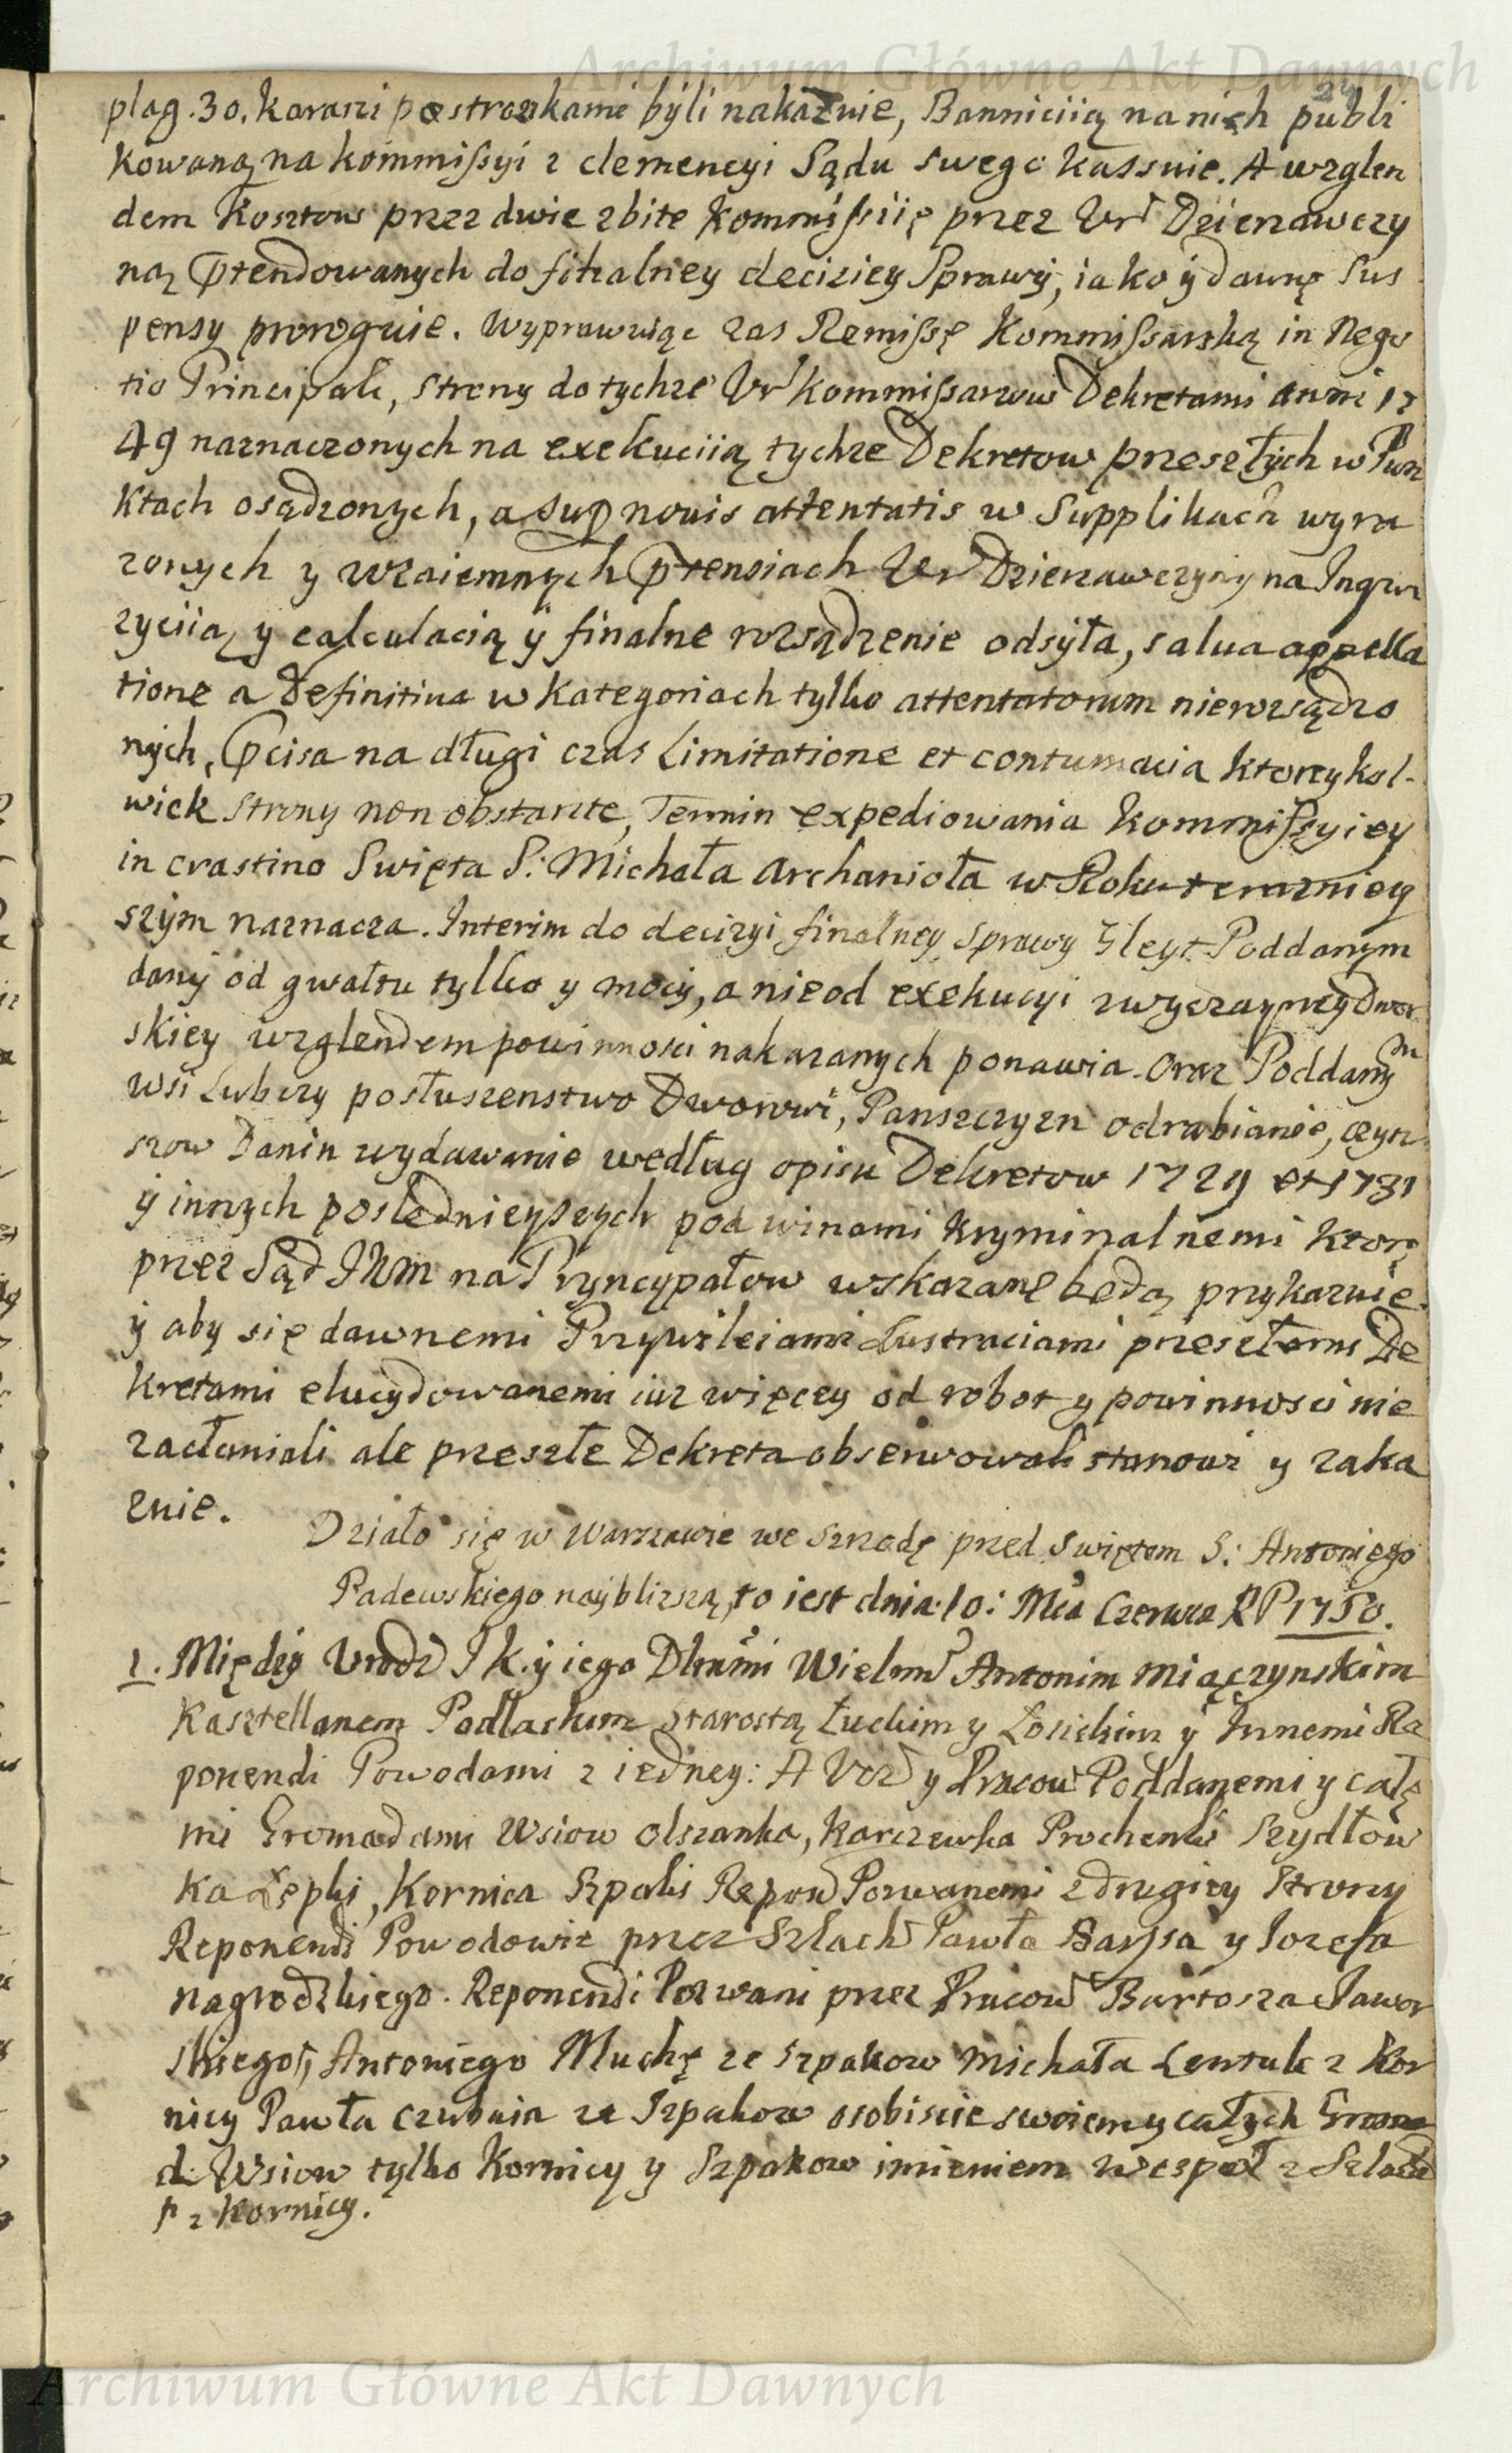 Archiwum Główne Akt Dawnych
24
plag. 30. karani postronkami byli nakaznie, Banniciią na nich publi
kowaną na kommissyi z clemencyi Sądu swego kassuie. A wzglen
dem Kosztow przez dwie zbite kommissiię przez Ur Dzierzawczy
ną Ptendowanych do finalney deciziey Sprawy, iako y dawnę Sus
pensy prorogue. Wyprawuiąc zas Remissę Kommissarską in Nego
tio Principali, strony do tychze Ur kommissarzow Dekretami anni 17
49 naznaczonych na exekuciią tychze Dekretow przeszłych w Pun
ktach osądzonych, a sup novis attentatis w Supplikach wyra
zonych y wzaiemnych Ptensiach Ur Dzierzawczyny na Inqwi
zyciią y calculacią y finalne rozsądzenie odsyła, salua appella
tione a Definitiua w kategoriach tylko attentatorum nierozsądzo
nych, Pcisa na długi czas Limitatione et contumacia ktoreykol-
wiek strony non obstante, Termin expediowania kommissyiey
in crastino Swięta S: Michała Archanioła w Roku terazniey
szym naznacza. Interim do decizyi finalney sprawy Gleyt Poddanym
dany od gwałtu tylko y mocy, a nie od exekucyi zwyczayney dwor
skiey wzglendem powinnosci nakazanych ponawia. Oraz Poddanym
wsi Lubczy posłuszenstwo Dworowi, Panszczyzn odrabianie, czyn
szow Danin wydawanie według opisu Dekretow 1729 et 1731
y innych poslednieyszych pod winami kryminalnemi ktorę
przez Sąd JKM na Pryncypałow wskazanę będą przykazuie.
y aby się dawnemi Przywileiami Lustraciami przeszłemi De
kretami elucydowanemi iuz więcey od robot y powinnosci nie
zacłaniali ale przeszłe Dekreta obserwowali stanowi y zaka
znie.
Działo się w Warszawie we Szrodę przed swiętem S: Antoniego
Padewskiego naybliszą, to iest dnia 10: Mca Czerwca RP 1750.
1. Między Urodz J k. y iego Dlnemi Wielmo Antonim Miączynskim
Kasztellanem Podlaskim Starostą Łuckim y Łosickim y Innemi Re
ponendi Powodami z iedney: A Urod y Pracow Poddanemi y całę
mi Gromadami Wsiow Olszanka, Karczewka Prochenki Szydłow
ka Łepki, Kornica Szpaki Repon Pozwanemi z drugiey Strony
Reponendi Powodowie przez Szlach Pawła Barssa y Jozefa
Nagrodzkiego. Reponendi Pozwani przez Pracow Bartosza Jawor
skiego, Antoniego Muchę ze Szpakow Michała Lentule z Kor
nicy Pawła Czubaia ze Szpakow osobiscie swoiem y całych Groma
d. Wsiow tylko Kornicy y Szpakow imieniem wespoł z Szlach
p z Kornicy.
Archiwum Główne Akt Dawnych